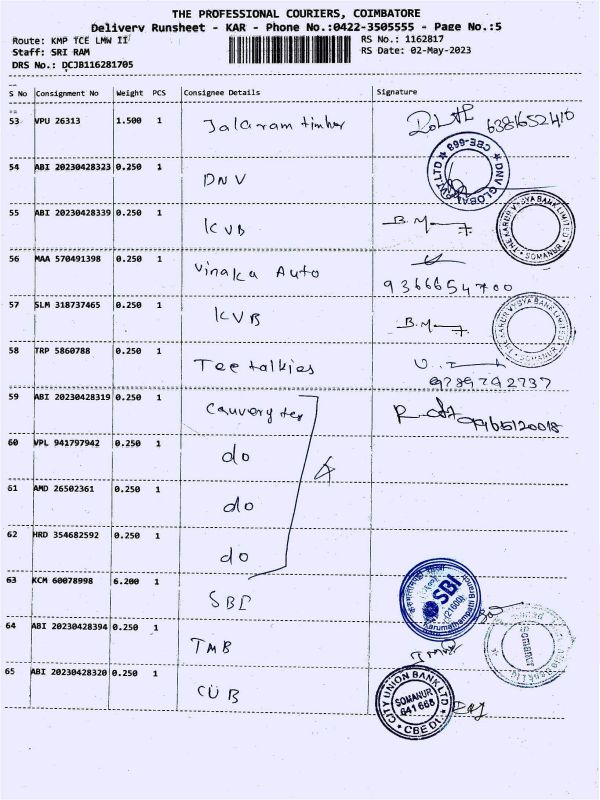 THE PROFESSIONAL COURIERS, COIMBATORE
Delivery Runsheet - KAR - Phone No.:0422-3505555 - Page No.:5
Route: KMP TCE LMW II
RS No.: 1162817
Staff: SRI RAM
RS Date: 02-May-2023
DRS No.: DCJB116281705
S No Consignment No Weight PCS Consignee Details Signature
53 VPU 26313 1.500 1 Jalaram timber 6381652410
54 ABI 20230428323 0.250 1 DNV
DNV GLOBAL PVT LTD CBE-669
55 ABI 20230428339 0.250 1 KVB B. M
THE KARUR VYSYA BANK LIMITED SOMANUR
56 MAA 570491398 0.250 1 Vinaka Auto
9366654700
57 SLM 318737465 0.250 1 KVB B. M
THE KARUR VYSYA BANK LIMITED SOMANUR
58 TRP 5860788 0.250 1 Tee talkies
9789792737
59 ABI 20230428319 0.250 1 Cauvery tex 9965120018
60 VPL 941797942 0.250 1 do
61 AMD 26502361 0.250 1 do
4
62 HRD 354682592 0.250 1 do
63 KCM 60078998 6.200 1 SBI
SBI Karumathampatti Branch
64 ABI 20230428394 0.250 1 TMB
Somanur
65 ABI 20230428320 0.250 1 CUB
CITY UNION BANK LTD SOMANUR 641 668 CBE Dt.